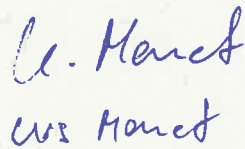 U. Monet
urs Monet